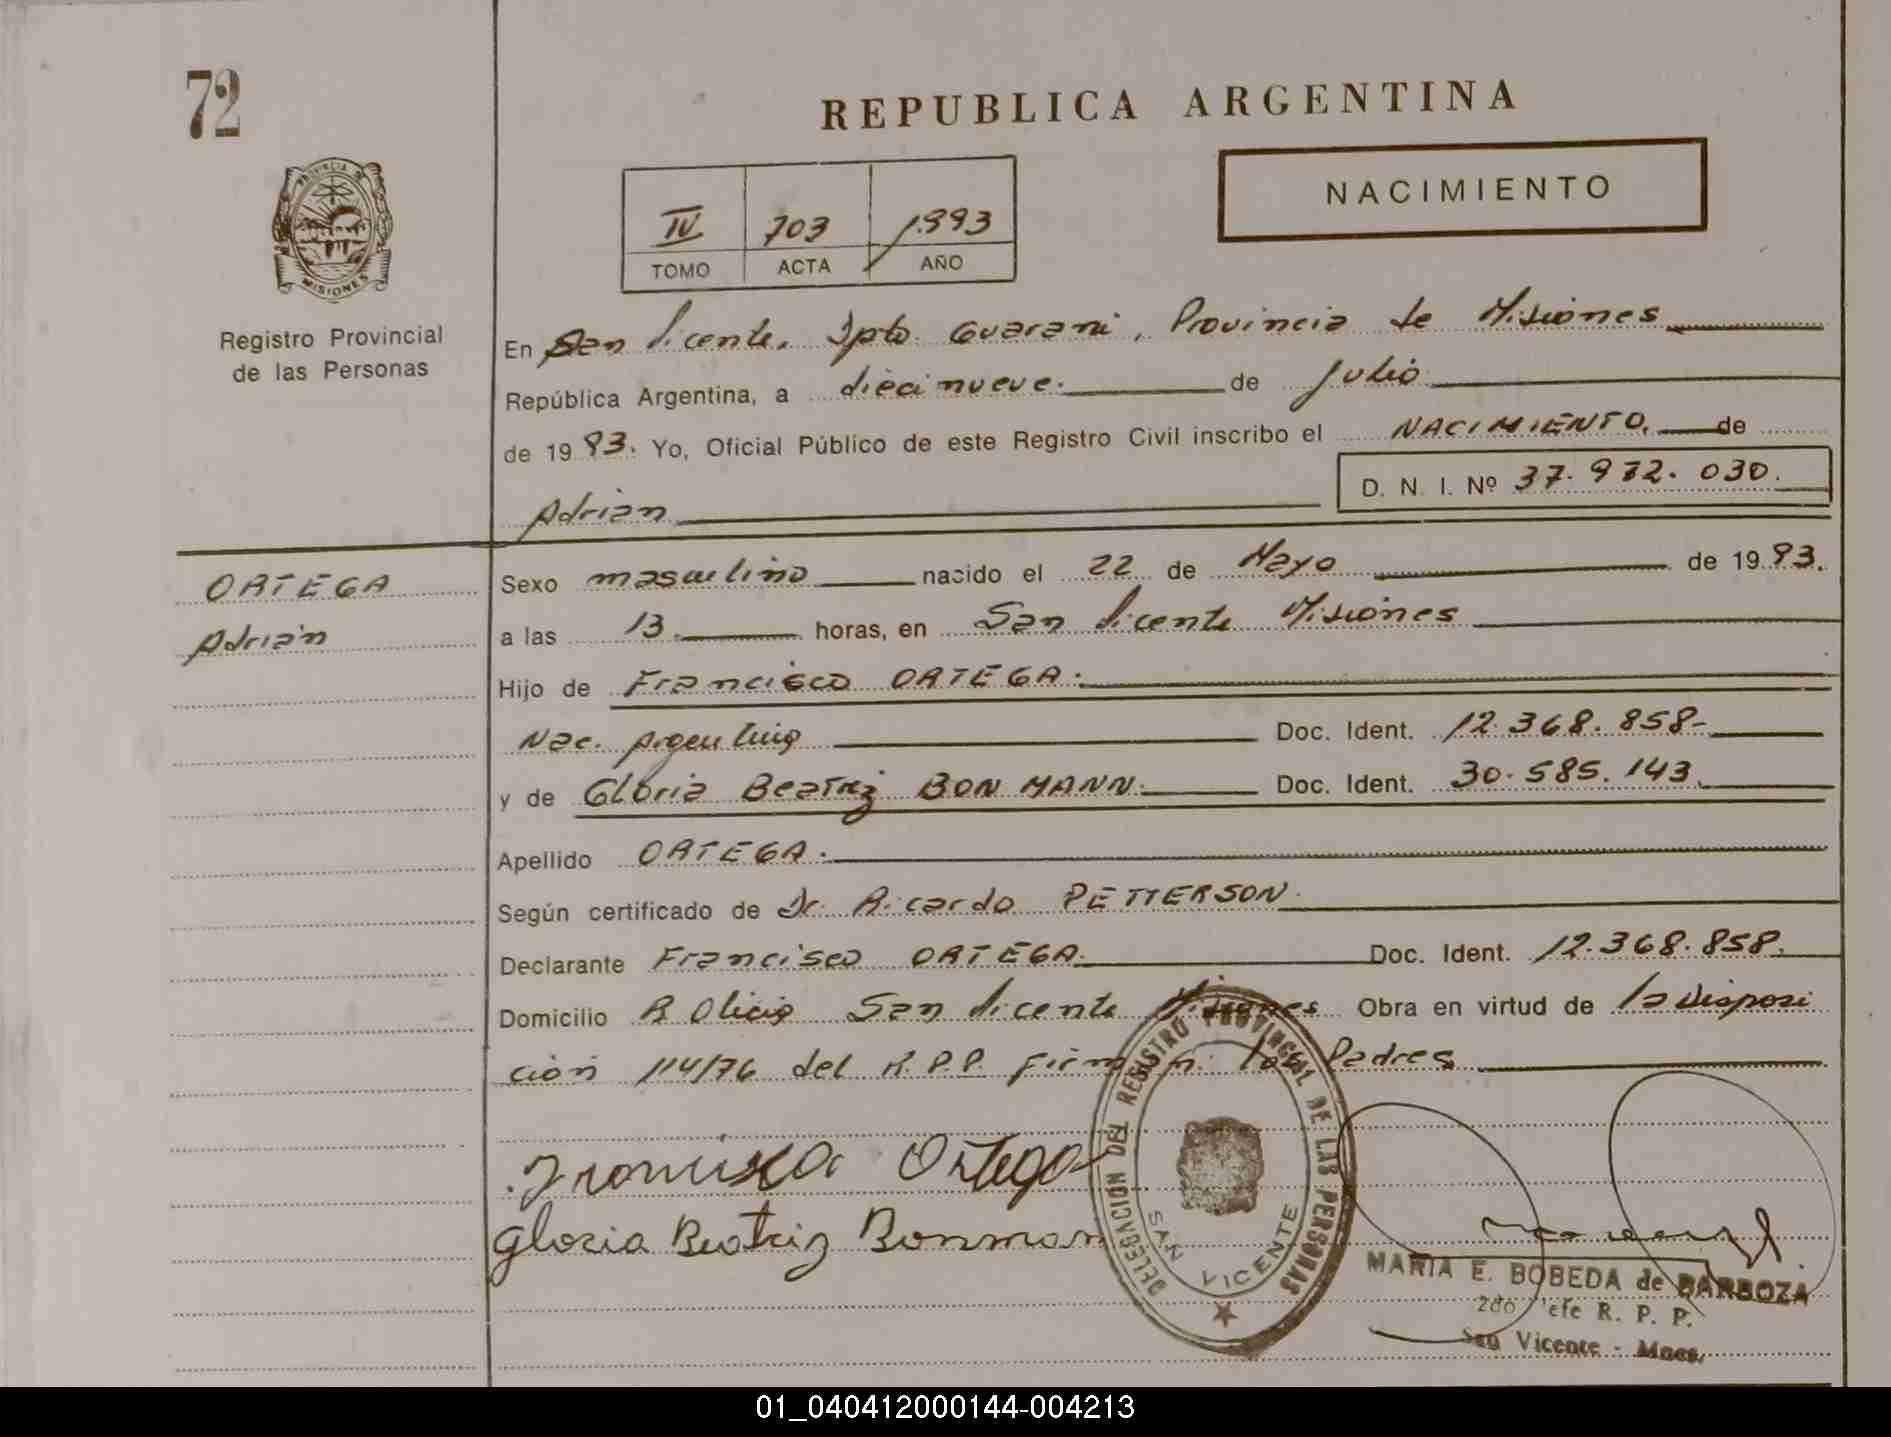 72
REPUBLICA ARGENTINA
PROVINCIA DE
MISIONES
NACIMIENTO
IV 703 1993
TOMO ACTA AÑO
Registro Provincial
de las Personas
En San Vicente, Dpto. Guarani, Provincia de Misiones
República Argentina, a diecinueve. de Julio
de 1993. Yo, Oficial Público de este Registro Civil inscribo el NACIMIENTO. de
D. N. I. Nº 37.972.030.
Adrian
ORTEGA
Adrián
Sexo masculino nacido el 22 de Mayo de 1993.
a las 13 horas, en San Vicente Misiones
Hijo de Francisco ORTEGA.
Nac. Argentina Doc. Ident. 12.368.858-
y de Gloria Beatriz BONMANN. Doc. Ident. 30.585.143.
Apellido ORTEGA.
Según certificado de Dr. Ricardo PETTERSON.
Declarante Francisco ORTEGA. Doc. Ident. 12.368.858.
Domicilio San Vicente Misiones Obra en virtud de la disposi
ción 114/76 del R.P.P. Firman: los Padres
Francisco Ortega
Gloria Beatriz Bonman
DELEGACION DEL REGISTRO PROVINCIAL DE LAS PERSONAS
SAN VICENTE
MARIA E. BOBEDA de BARBOZA
2do Jefe R. P. P.
San Vicente - Mnes.
01_040412000144-004213